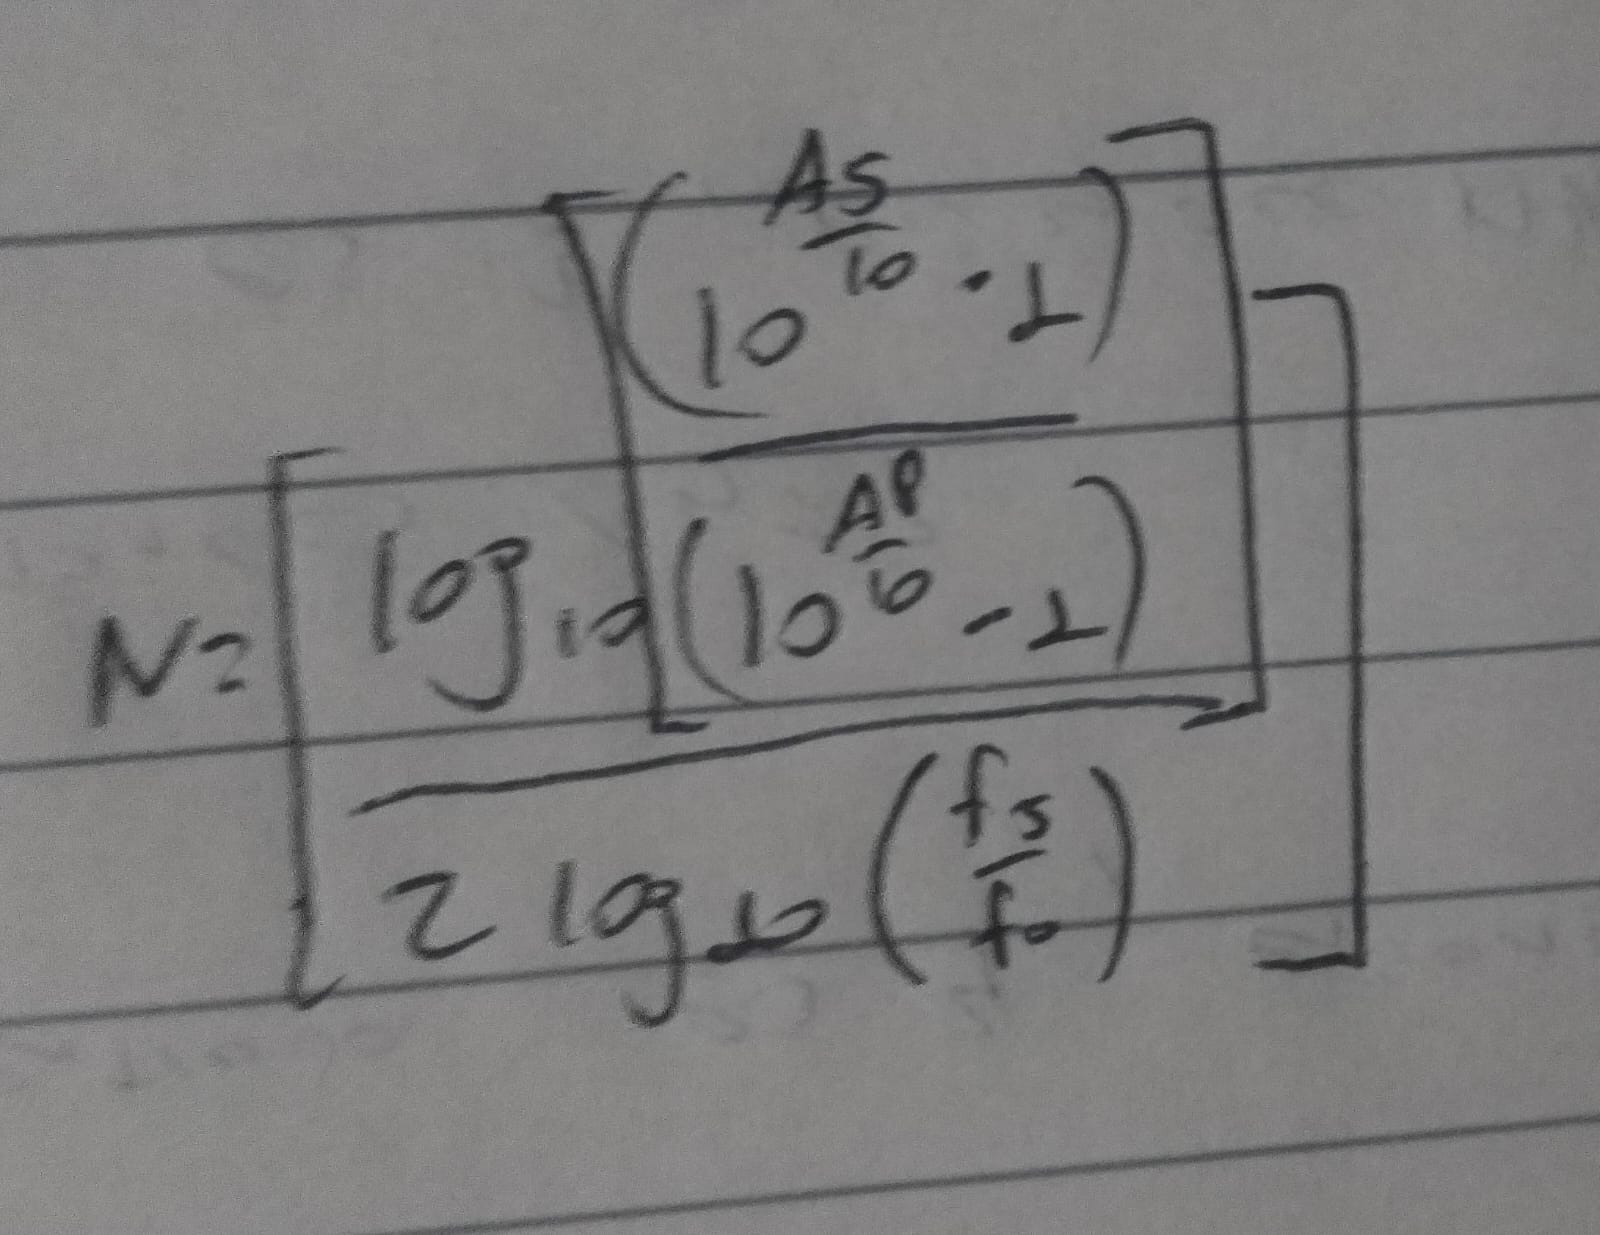 N = [ log10 [ (10^(As/10) - 1) / (10^(Ap/10) - 1) ] / 2 log10 (fs/fo) ]